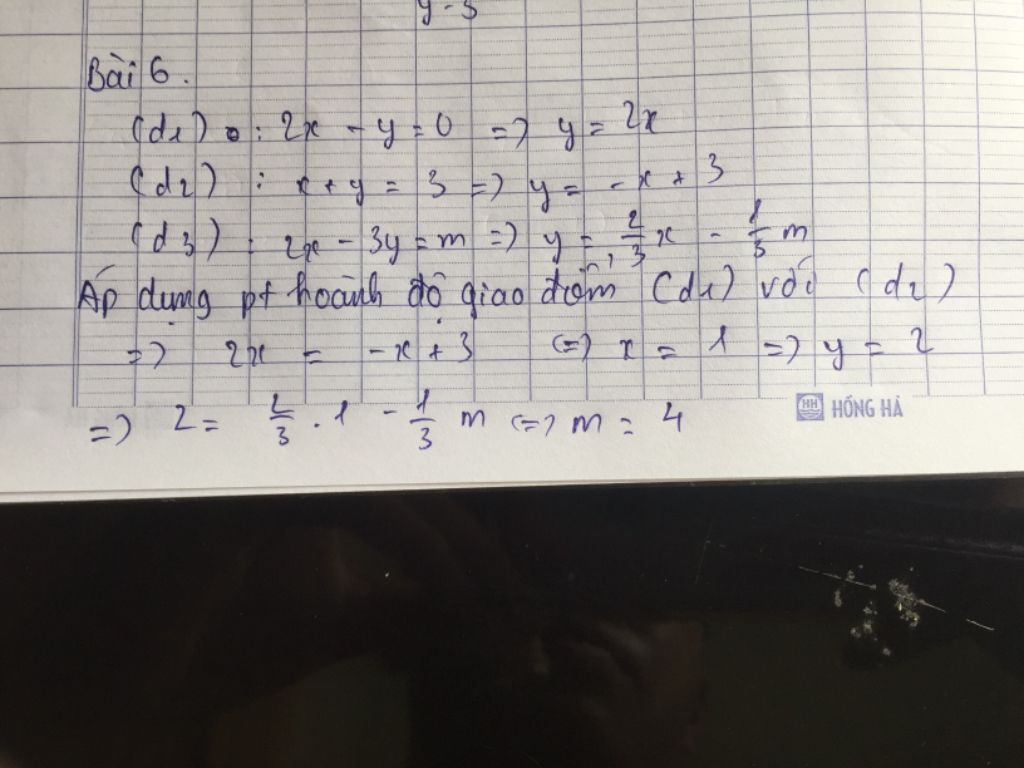 y-3
Bài 6.
(d1) : 2x - y = 0 => y = 2x
(d2) : x + y = 3 => y = -x + 3
(d3) : 2x - 3y = m => y = 2/3 x - 1/3 m
Áp dụng pt hoành độ giao điểm (d1) với (d2)
=> 2x = -x + 3 <=> x = 1 => y = 2
=> 2 = 2/3 . 1 - 1/3 m <=> m = 4
HH HỒNG HÀ